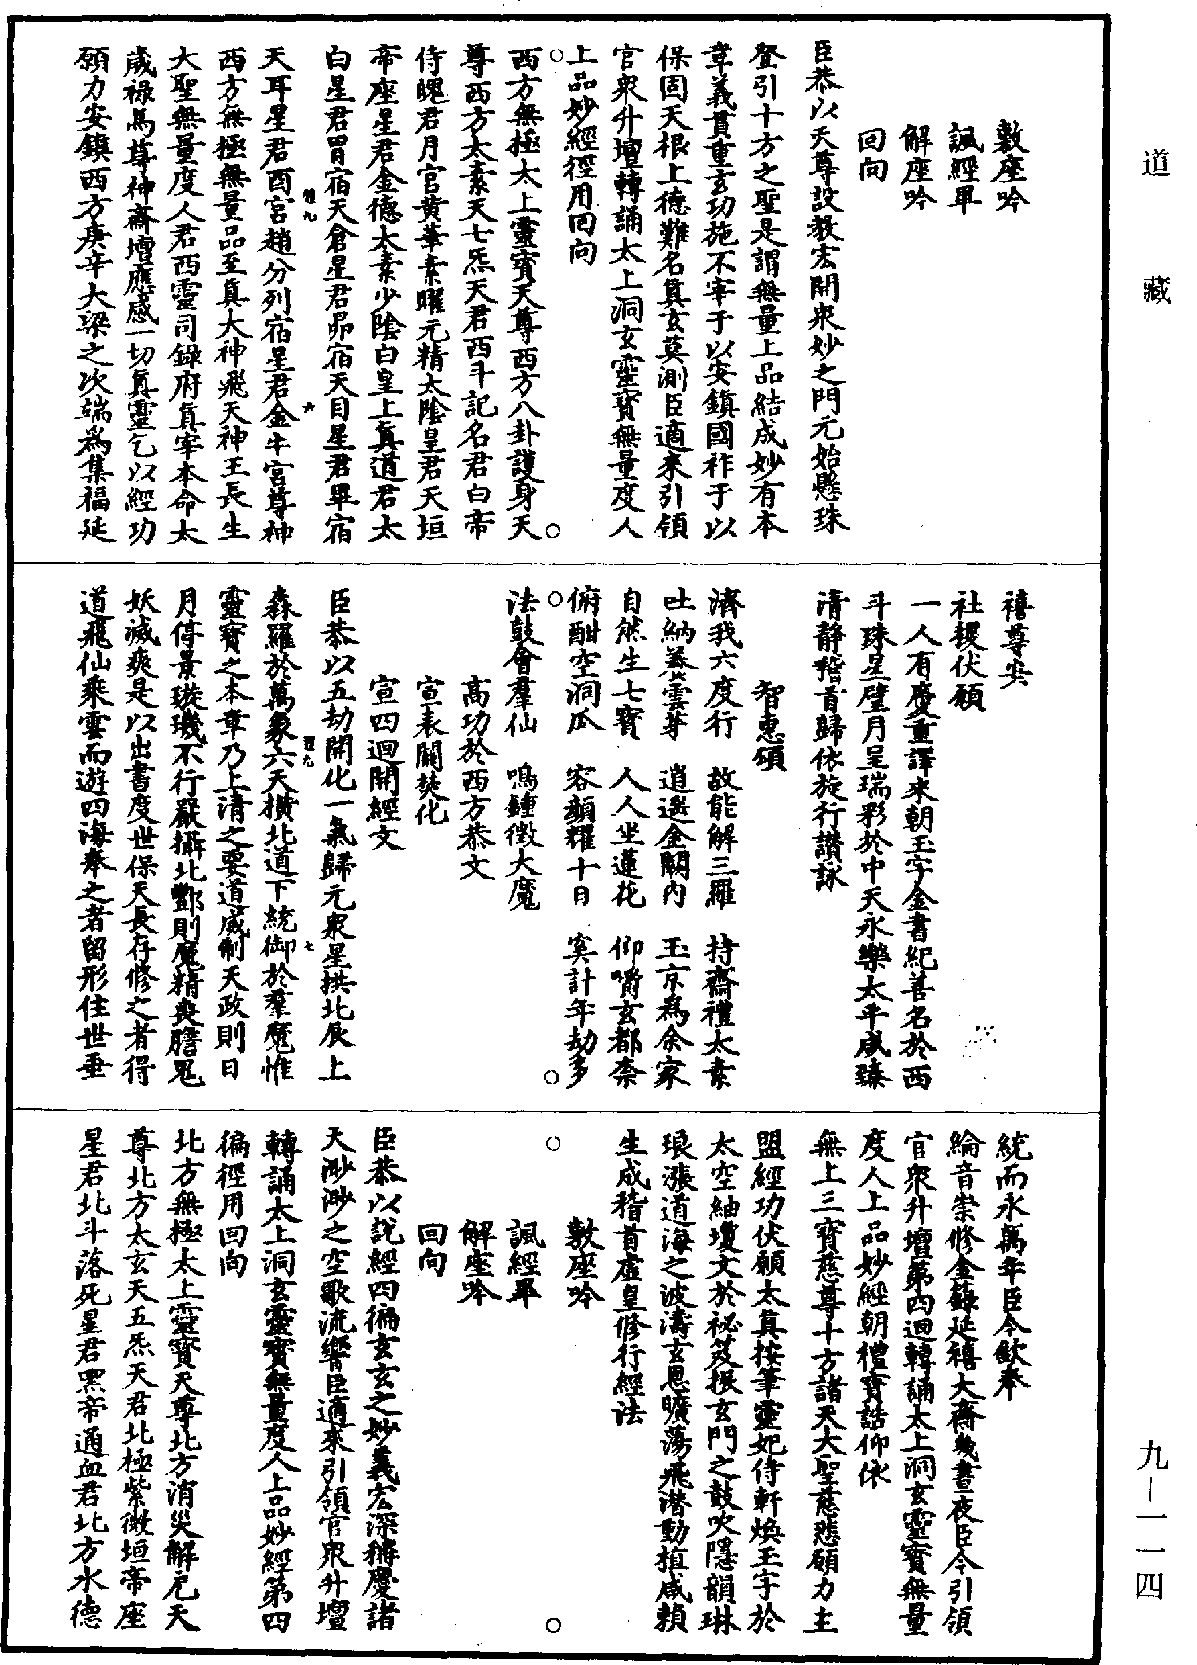 道藏
敷座吟
諷經畢
解座吟
回向
臣恭以天尊設教宏開衆妙之門元始懸珠
登引十方之聖是謂無量上品結成妙有本
章義貫重玄功施不宰于以安鎮國祚于以
保固天根上德難名真玄莫測臣適來引領
官衆升壇轉誦太上洞玄靈寳無量度人
上品妙經徑用回向
西方無極太上靈寳天尊西方八卦護身天
尊西方太素天七炁天君西斗記名君白帝
侍晚君月宮黄華素曜元精太陰皇君天垣
帝座星君金德太素少陰白皇上真道君太
白星君胃宿天倉星君昴宿天目星君畢宿
天耳星君酉宮趙分列宿星君金牛宮尊神
西方無極無量品至真大神飛天神王長生
大聖無量度人君西靈司錄府真宰本命太
歲祿馬尊神齋壇應感一切真靈乞以經功
願力安鎮西方庚辛大梁之次端爲集福延
禧尊安
社稷伏願
一人有慶重譯來朝玉字金書紀善名於西
斗珠星璧月呈瑞彩於中天永樂太平咸臻
清靜稽首歸依旋行讃詠
智惠頌
濟我六度行　故能解三羅　持齋禮太素
吐納養雲芽　逍遥金闕内　玉京爲余家
自然生七寳　人人坐蓮花　仰嚼玄都柰
俯酣空洞瓜　容顔耀十日　奚計年劫多
○
法鼓會羣仙　鳴鐘徵大魔
高功於西方恭文
宣表關焚化
宣四迴開經文
臣恭以五劫開化一氣歸元衆星拱北辰上
森羅於萬象六天横北道下統御於羣魔惟
靈寳之本章乃上清之要道威制天政則日
月停景璇璣不行嚴攝北酆則魔精喪膽鬼
妖滅爽是以出書度世保天長存修之者得
道飛仙乘雲而遊四海奉之者留形住世垂
統而永萬年臣今欽奉
綸音崇修金籙延禧大齋幾晝夜臣今引領
官衆升壇第四迴轉誦太上洞玄靈寳無量
度人上品妙經朝禮寳誥仰依
無上三寳慈尊十方諸天大聖慈悲願力主
盟經功伏願太真按筆靈妃侍軒煥玉字於
太空紬瓊文於祕笈振玄門之鼓吹隱韻琳
琅漲道海之波濤玄恩曠蕩飛潛動植咸賴
生成稽首虚皇修行經法
敷座吟
諷經畢
解座吟
回向
臣恭以說經四徧玄玄之妙義宏深稱慶諸
天渺渺之空歌流響臣適來引領官衆升壇
轉誦太上洞玄靈寳無量度人上品妙經第四
徧徑用回向
北方無極太上靈寳天尊北方消災解厄天
尊北方太玄天五炁天君北極紫微垣帝座
星君北斗落死星君黑帝通血君北方水德
九－一一四